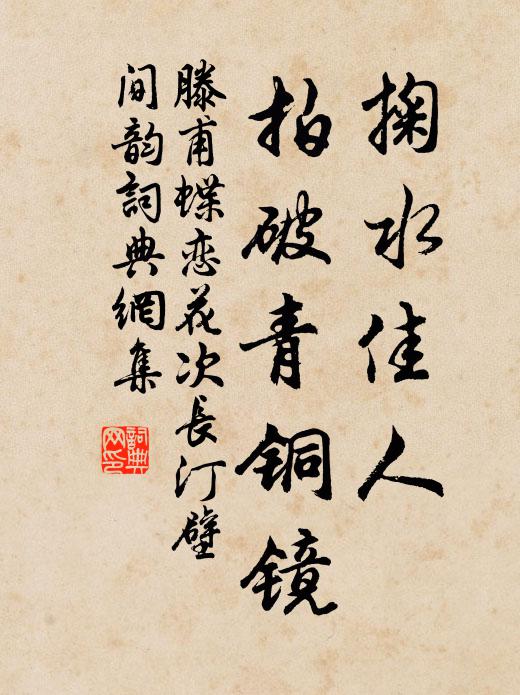 掬水佳人
拍破青铜镜
滕甫蝶恋花次長汀壁
间韵詞典網集
詞典
网印